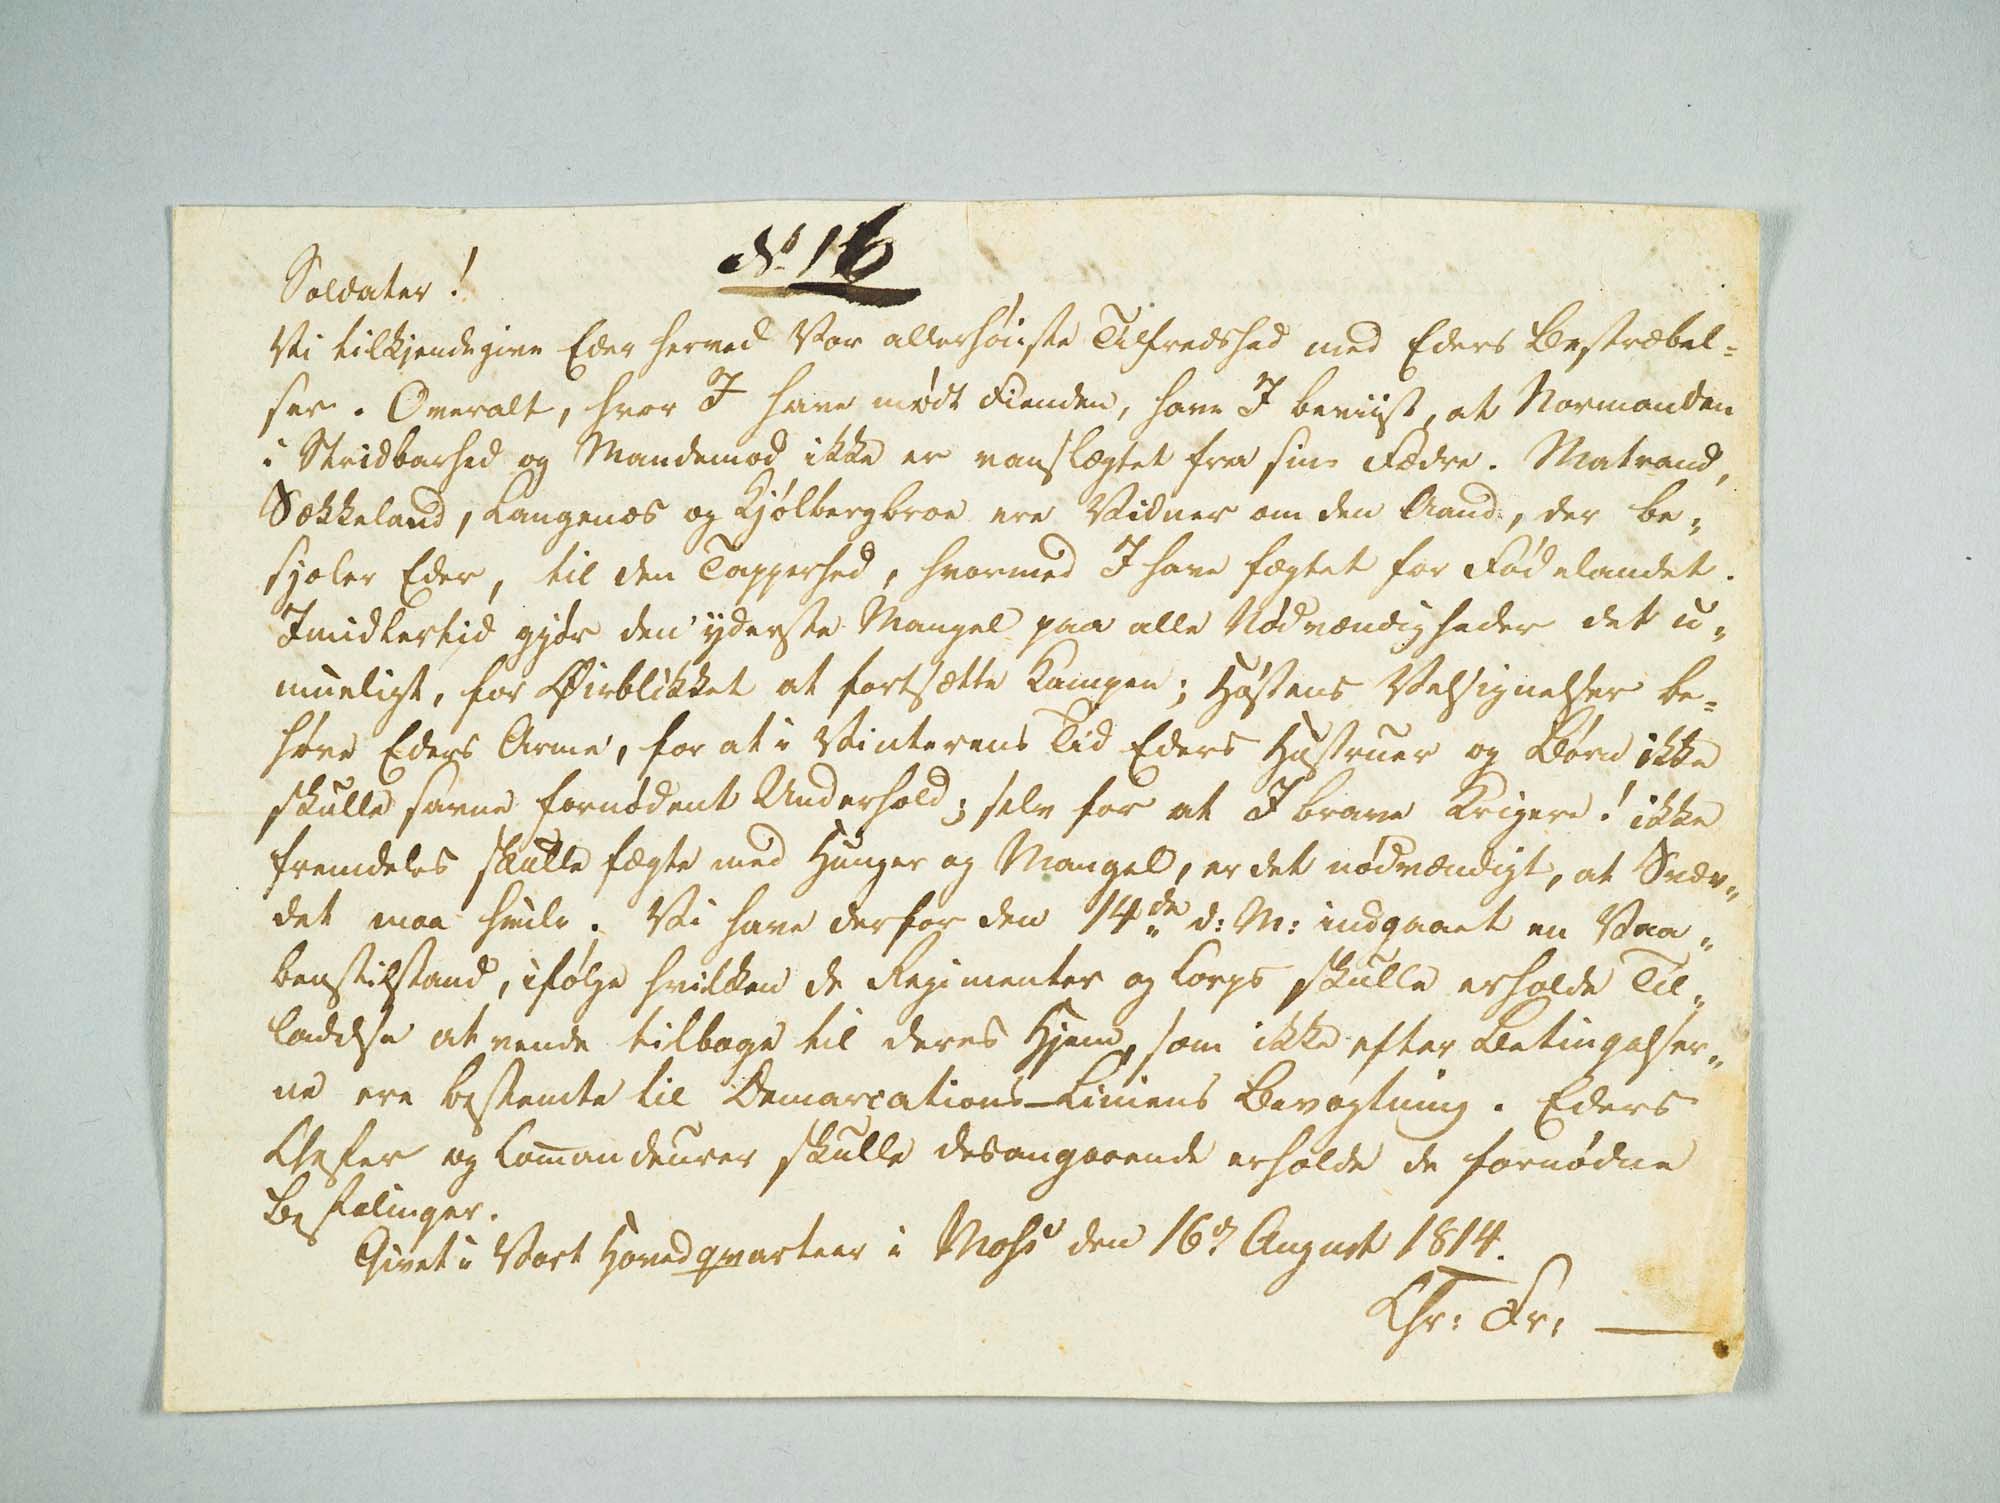 No 16
Soldater!
Vi tilkjendegive Eder herved Vor allerhöieste Tilfredshed med Eders Bestræbel=
ser. Overalt, hvor I have mödt Fienden, have I beviist, at Normanden
i Stridbarhed og Mandemod ikke er vanslægtet fra sine Fædre. Matrand,
Sækkeland, Langenæs og Kjölbergbroe ere Vidner om den Aand, der be=
sjæler Eder, til den Tapperhed, hvormed I have fægtet for Födelandet.
Imidlertid gjör den yderste Mangel paa alle Nödvændigheder det u=
mueligt, for Øieblikket at fortsætte Kampen; Höstens Velsignelser be=
höve Eders Arme, for at i Vinterens Tid Eders Hustruer og Börn ikke
skulle savne fornödent Underhold; selv for at I brave Krigere! ikke
fremdeles skulle fægte med Hunger og Mangel, er det nödvændigt, at Svær=
det maa hvile. Vi have derfor den 14de d: M: indgaaet en Vaa=
benstilstand, ifölge hvilken de Regimenter og Corps skulle erholde Til=
ladelse at vende tilbage til deres Hjem, som ikke efter Betingelser=
ne ere bestemte til Demarcations-Liniens Bevogtning. Eders
Chefer og Comandeurer skulle desangaaende erholde de fornödne
Befalinger.
Givet i Vort Hovedqvarteer i Moss den 16d August 1814.
Chr: Fr: